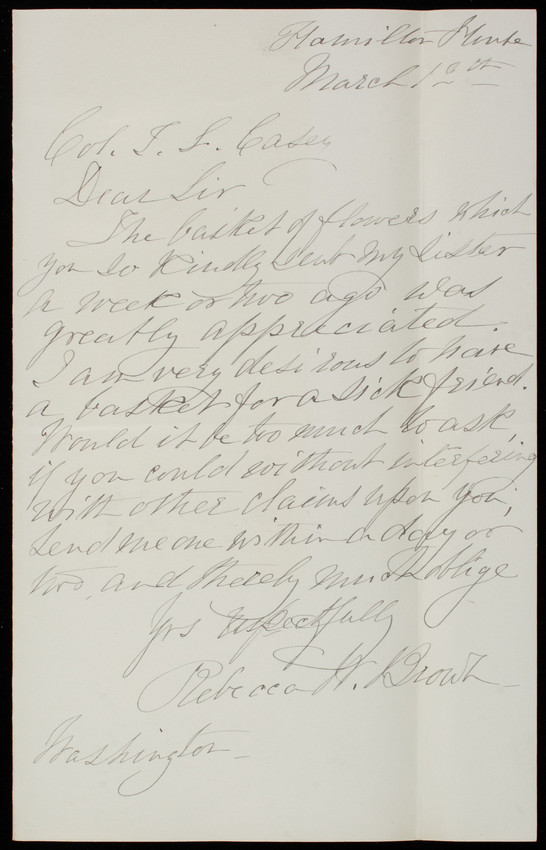 Hamilton House
March 12th
Col. T. L. Casey
Dear Sir
The basket of flowers which
you so kindly sent my sister
a week or two ago was
greatly appreciated.
I am very desirous to have
a basket for a sick friend.
Would it be too much to ask,
if you could without interfering
with other claims upon you,
send me one within a day or
two, and thereby much oblige
Yrs respectfully
Rebecca W. Brown
Washington